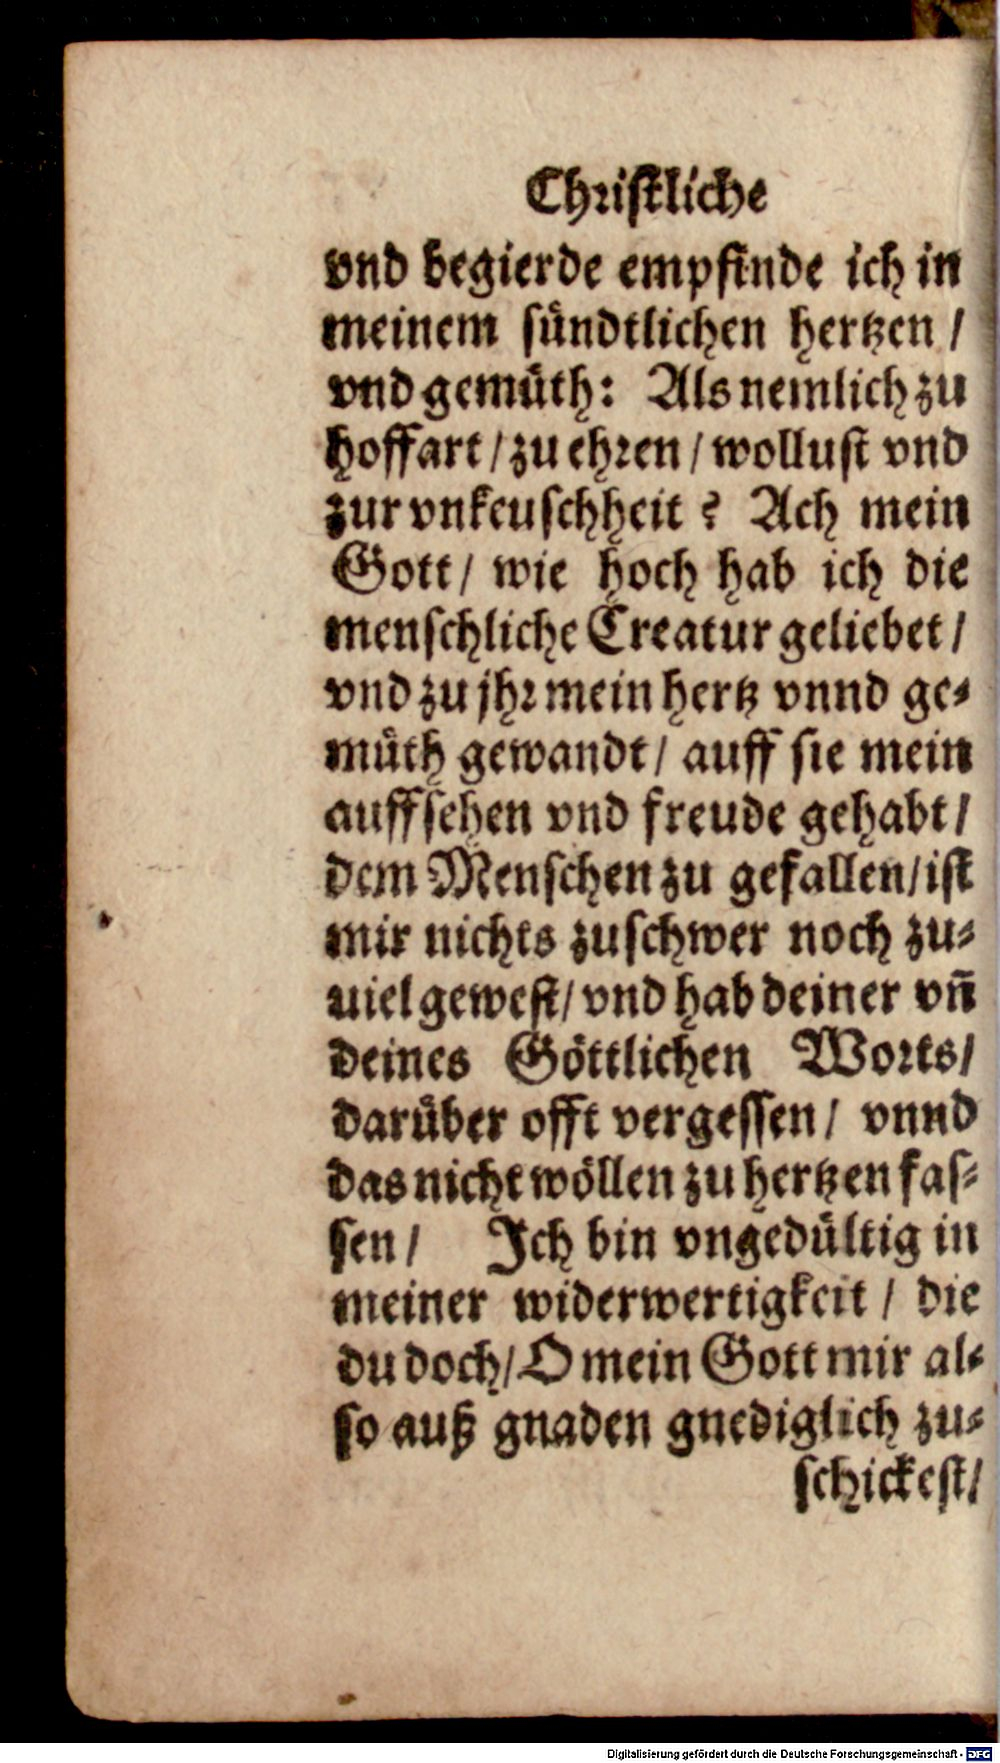 Christliche
vnd begierde empfinde ich in
meinem sündtlichen hertzen /
vnd gemüth: Als nemlich zu
hoffart / zu ehren / wollust vnd
zur vnkeuschheit? Ach mein
Gott / wie hoch hab ich die
menschliche Creatur geliebet /
vnd zu jhr mein hertz vnnd ge-
müth gewandt / auff sie mein
auffsehen vnd freude gehabt /
dem Menschen zu gefallen / ist
mir nichts zuschwer noch zu-
uiel gewest / vnd hab deiner vñ
deines Göttlichen Worts /
darüber offt vergessen / vnnd
das nicht wöllen zu hertzen fas-
sen / Ich bin vngedültig in
meiner widerwertigkeit / die
du doch / O mein Gott mir al-
so auß gnaden gnediglich zu-
schickest /
Digitalisierung gefördert durch die Deutsche Forschungsgemeinschaft - DFG